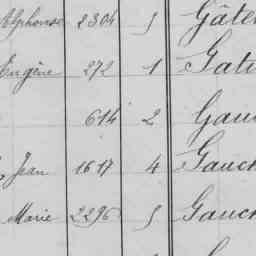 Alphonse 2304 5
Eugène 272 1
614 2
Jean 1617 4 Gauch
Marie 2296 5 Gauch